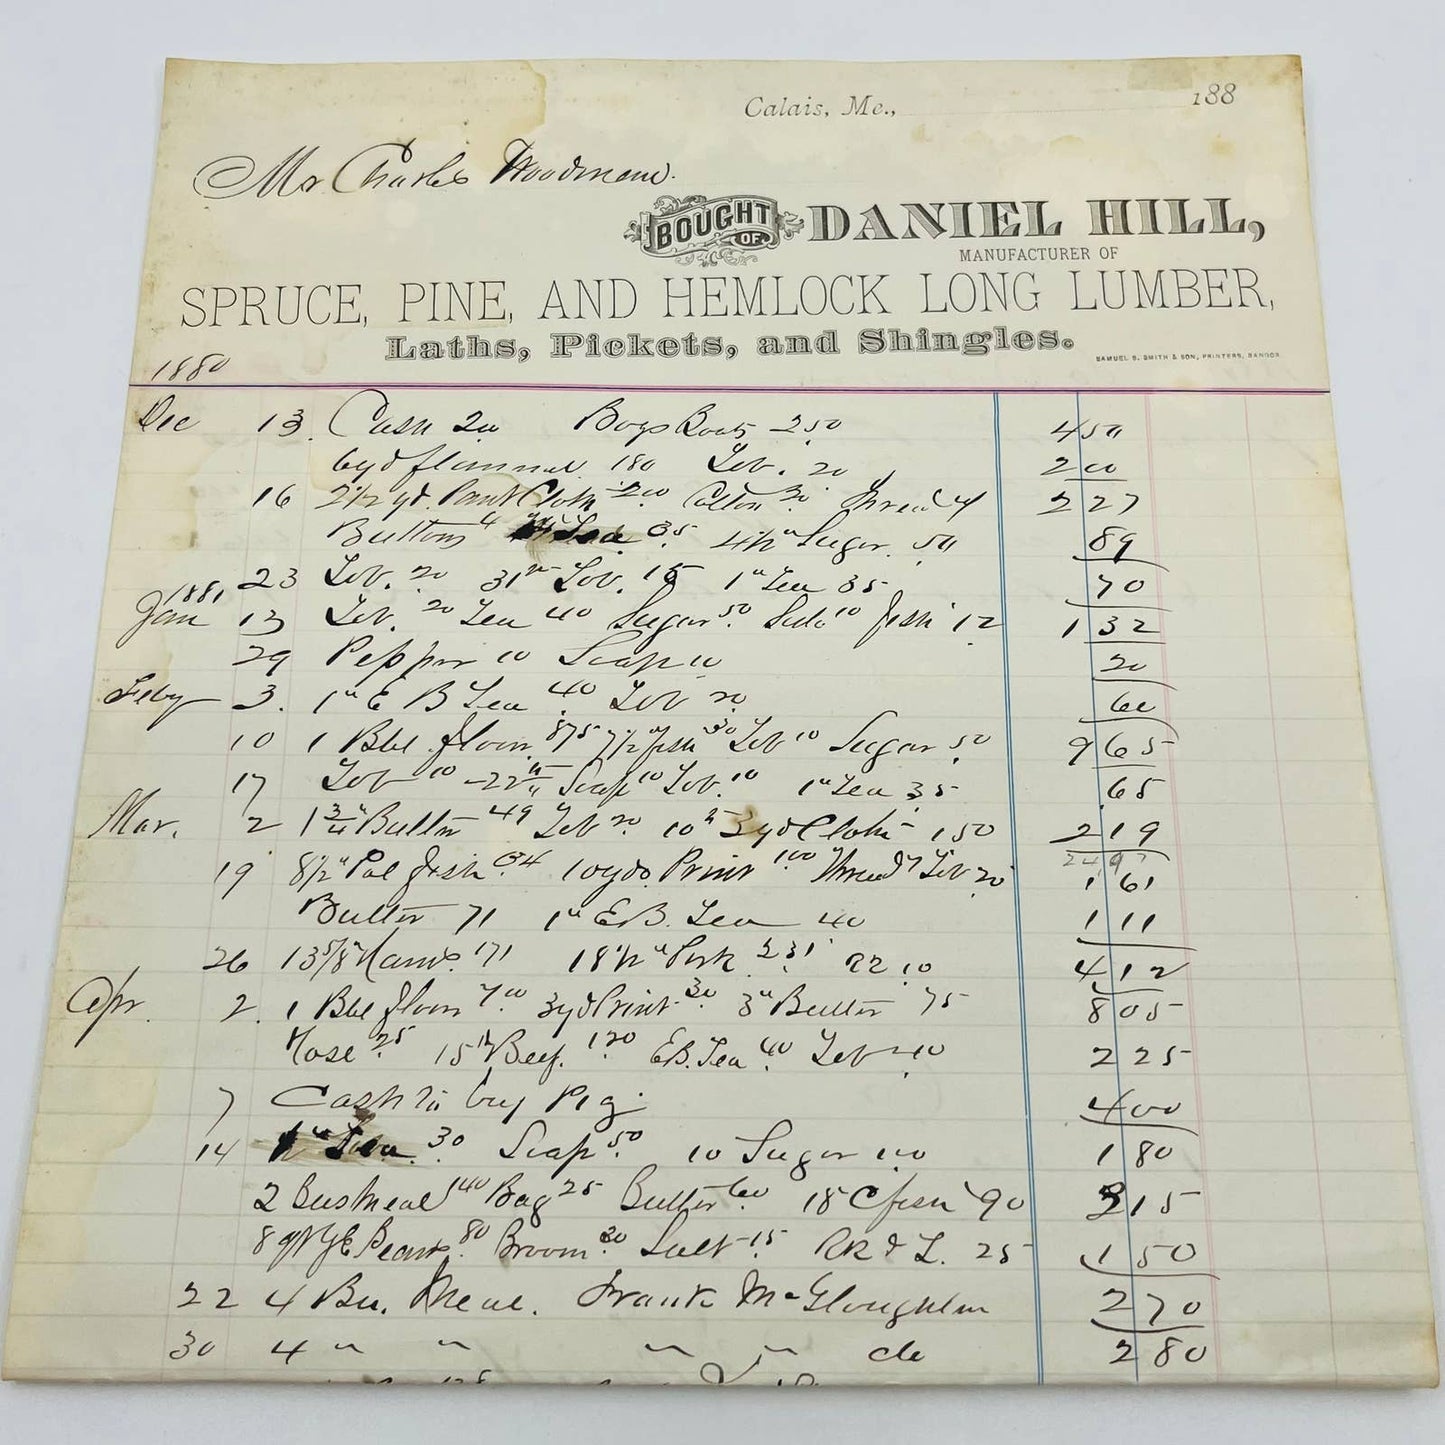 Calais, Me., 188
Mr Charles Woodman.
BOUGHT OF DANIEL HILL,
MANUFACTURER OF
SPRUCE, PINE, AND HEMLOCK LONG LUMBER,
Laths, Pickets, and Shingles.
SAMUEL S. SMITH & SON, PRINTERS, BANGOR
1880
Dec 13. Cash 200 Boys Boots 250 450
6yd flannel 180 Tob. 20 200
16 2 1/2 yd. Pant Cloth 200 Cotton 20 Thread 4 227
Buttons 4 Tea 35 4 1/2 " Sugar. 50 89
23 Tob. 20 Tob. 15 1" Tea 35 70
1881
Jan 13 Tob. 20 Tea 40 Sugar 50 10 fish 12 1 32
29 Pepper 10 Soap 10 20
Feby 3. 1" E B Tea 40 Tob 20 60
10 1 Bbl flour 875 7 1/2 fish 30 Tob 10 Sugar 50 9 65
17 Tob 10 Soap 10 Tob. 10 1" Tea 35 65
Mar. 2 1 3/4" Butter 49 Tob 20 3yd Cloth 150 2 19
24 97
19 8 1/2" Pol fish 34 10yds. Print 100 Thread 7 Tob 20 1 61
Butter 71 1" E.B. Tea 40 1 11
26 13 5/8 Ham 171 18 1/2 " Pork 231 10 4 12
Apr. 2. 1 Bbl flour 700 3yd Print 30 3" Butter 75 8 05
Hose 25 15 Beef. 120 E.B. Tea 40 Tob 40 2 25
7 Cash to buy Pig. 4 00
14 Tea 30 Soap 50 10 Sugar 100 1 80
2 Bus Meal 140 Bag 25 Butter 60 18 C fish 90 3 15
8 qt Y E Beans 80 Broom 30 Salt 15 R R & L. 25 1 50
22 4 Bu. Meal. Frank McGloughlin 2 70
30 4 " " " " do 2 80